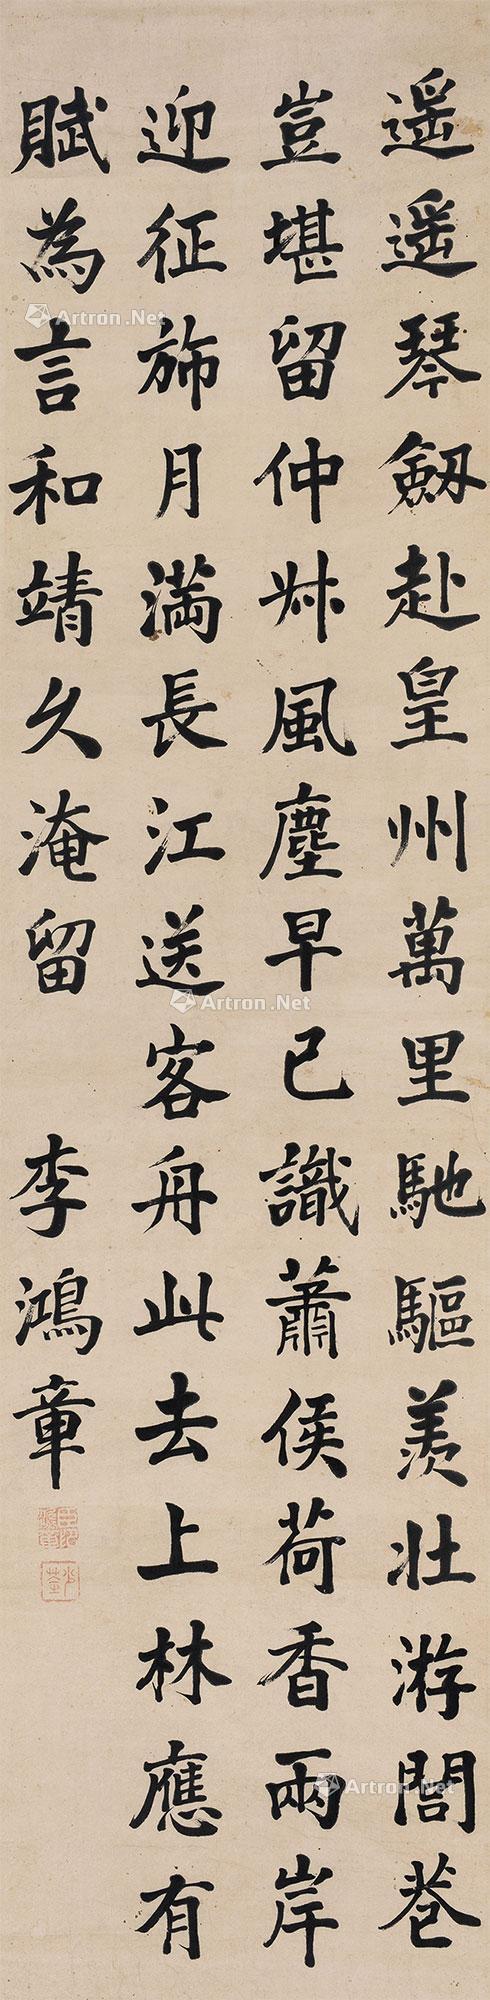 遥遥琴劒赴皇州萬里馳驅羨壯游閭巷
豈堪留仲叔風塵早已識蕭侯荷香兩岸
迎征斾月滿長江送客舟此去上林應有
賦為言和靖久淹留 李鴻章
Artron.Net
Artron.Net
Artron.Net